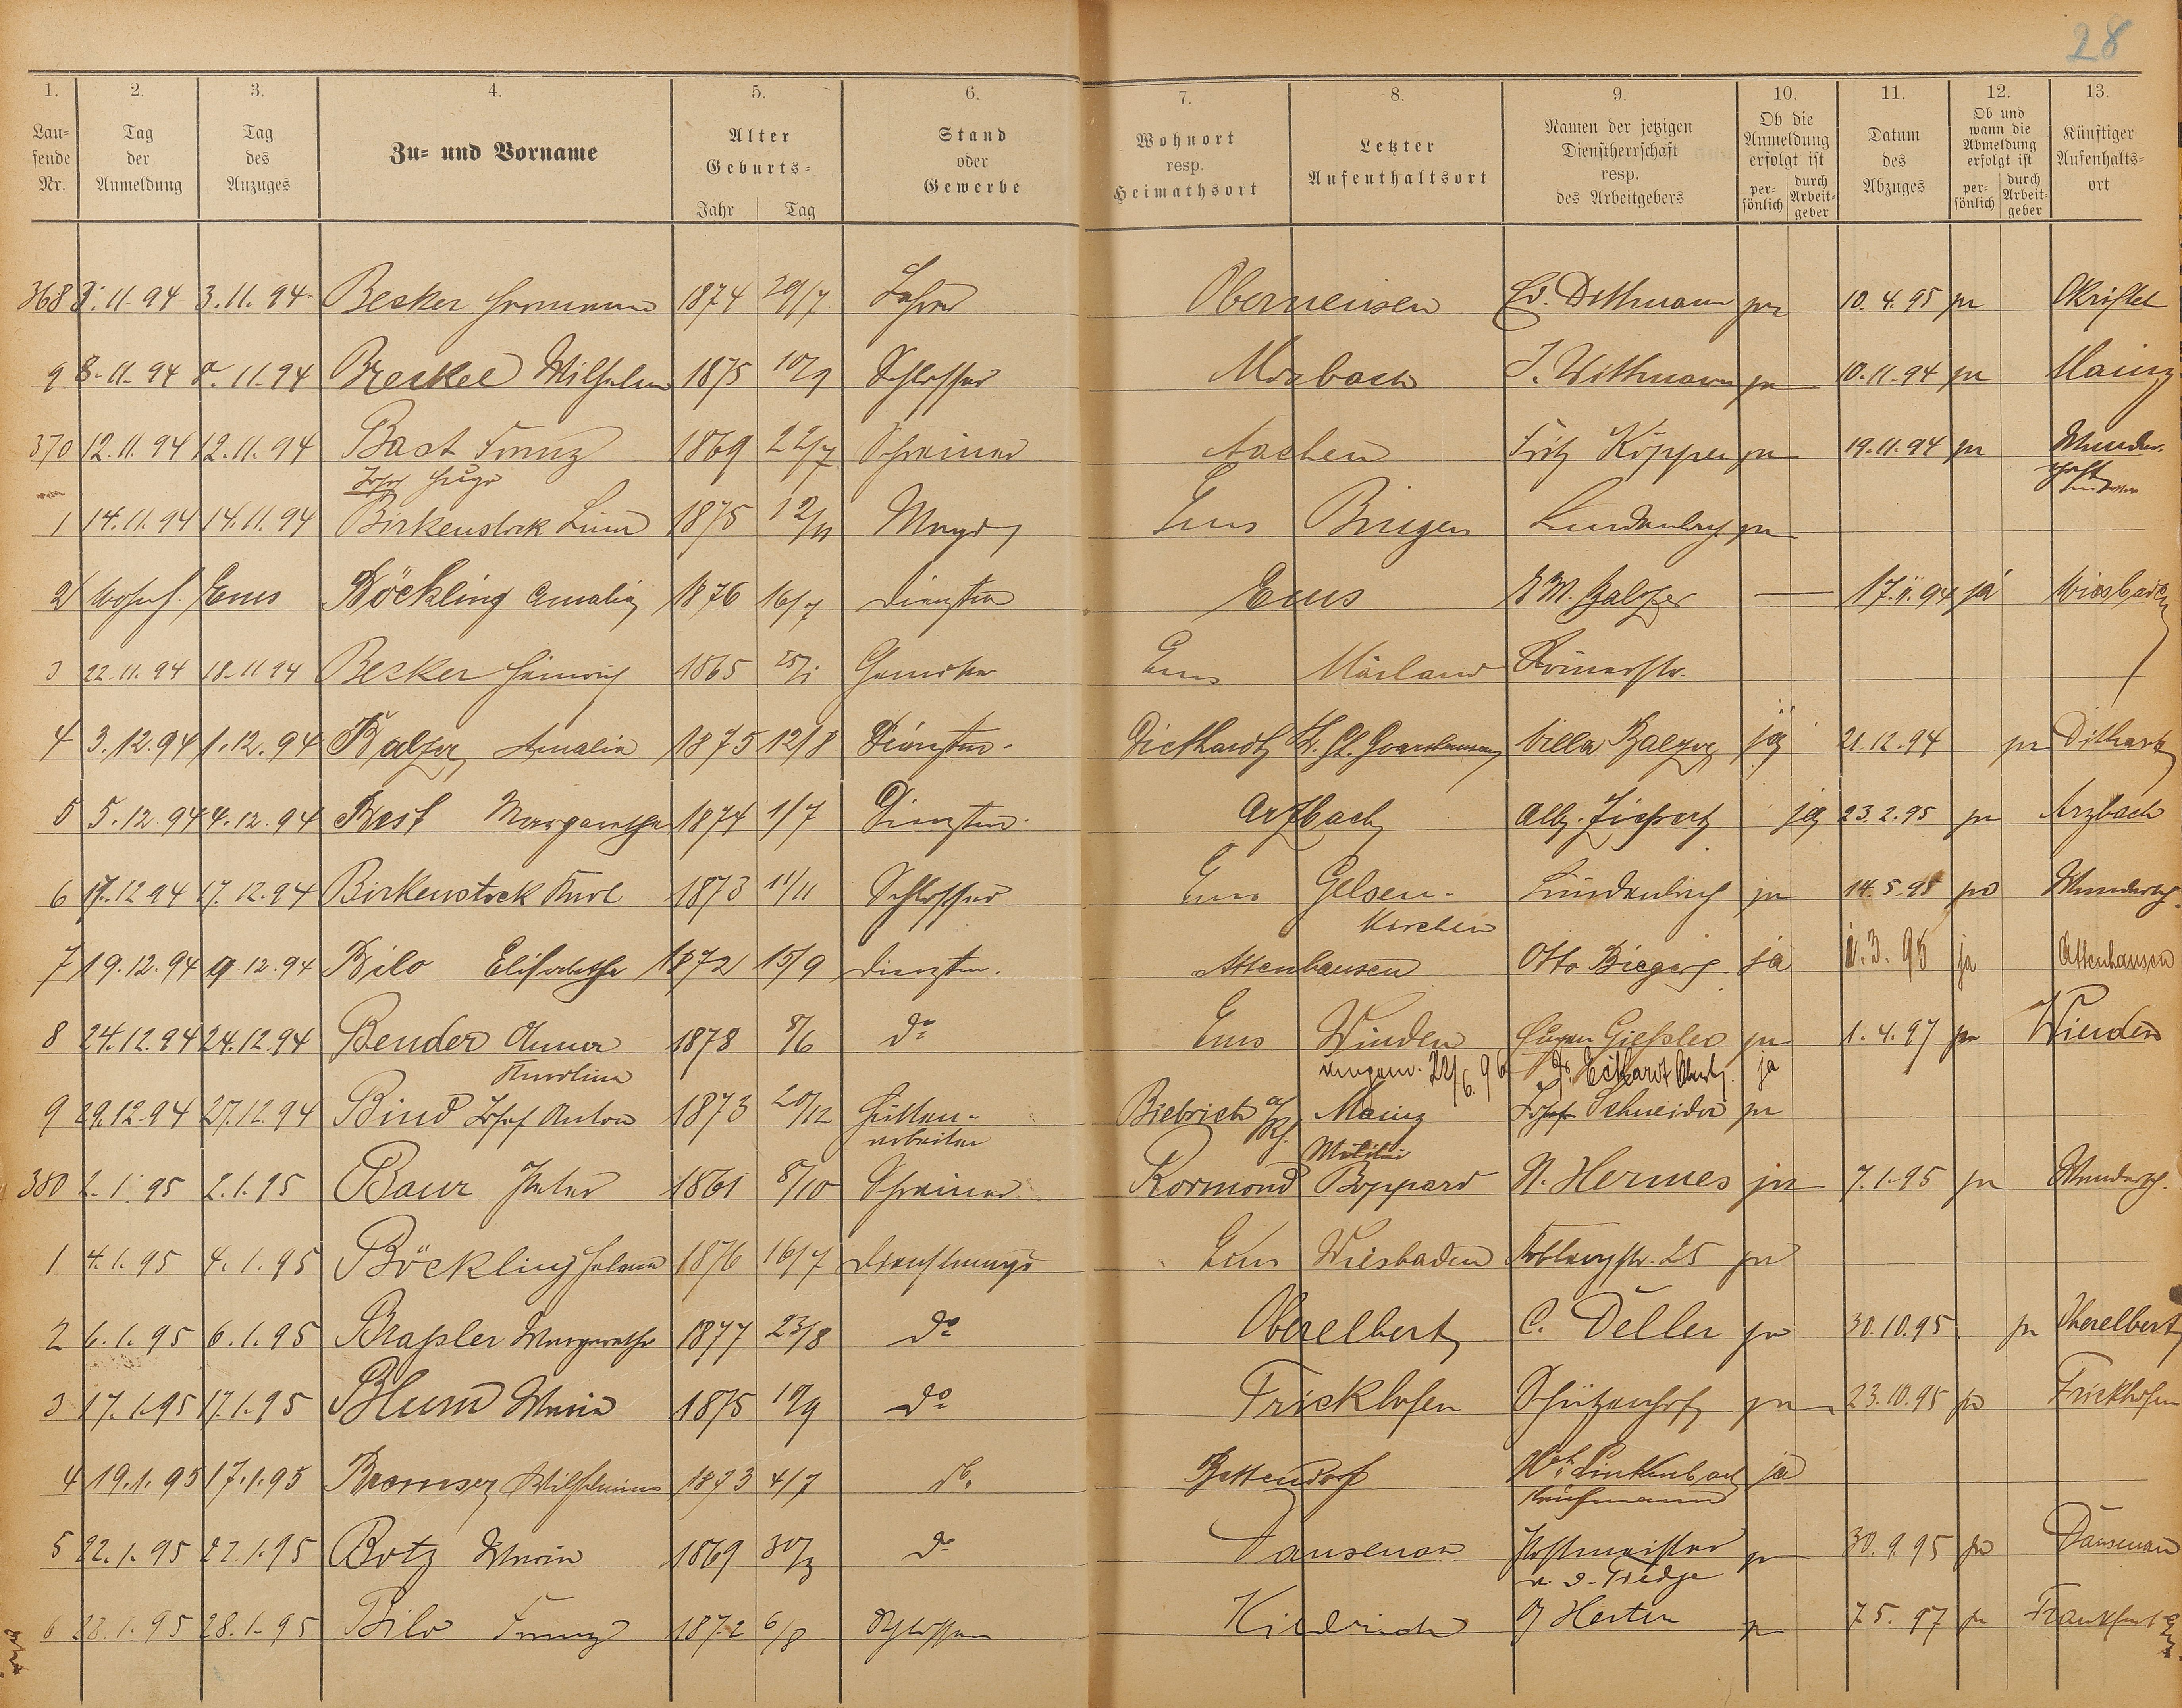 28
1. 2. 3. 4. 5. 6. 7. 8. 9. 10. 11. 12. 13.
Lau=
fende
Nr.
Tag
der
Anmeldung
Tag
des
Anzuges
Zu= und Vorname
Alter
Geburts=
Jahr Tag
Stand
oder
Gewerbe
Wohnort
resp.
Heimathsort
Letzter
Aufenthaltsort
Namen der jetzigen
Dienstherrschaft
resp.
des Arbeitgebers
Ob die
Anmeldung
erfolgt ist
per=
sönlich
durch
Arbeit=
geber
Datum
des
Abzuges
Ob und
wann die
Abmeldung
erfolgt ist
per=
sönlich
durch
Arbeit=
geber
Künftiger
Aufenthalts=
ort
368 3.11.94 3.11.94 Becker Hermann 1874 29/7 Lehrer Oberneisen Ed. Dithmann ja 10.4.95 ja Okriftel
9 8.11.94 8.11.94 Breskel Wilhelm 1875 10/9 Schlosser Mosbach J. Withmann ja 10.11.94 ja Mainz
370 12.11.94 12.11.94 Bast Franz 1869 22/7 Schreiner Aachen Fritz Köpper ja 19.11.94 ja Wander-
Josef Hugo schaft
1 14.11.94 14.11.94 Birkenstock Lina 1875 12/11 Magd Ems Bingen Lindenbach ja
2 wohnh. Ems Böckling Amalia 1876 16/7 Dienstm. Ems Balzer — 17.11.94 ja Wiesbaden
3 22.11.94 18.11.94 Becker Heinrich 1865 25/1 Ems Mailand Römerstr.
4 3.12.94 1.12.94 Balzer Amalia 1875 12/8 Dienstm. Diethardt St. Goarshausen Villa Balzer ja 21.12.94 ja Dithardt
5 5.12.94 4.12.94 Best Margaretha 1874 1/7 Dienstm. Arzbach Alb. ja 23.2.95 ja Arzbach
6 17.12.94 17.12.94 Birkenstock Karl 1873 11/11 Schlosser Ems Gelsen- Lindenbach ja 14.5.95 ja Wandersch.
kirchen
7 19.12.94 19.12.94 Bilo Elisabetha 1872 15/9 Dienstm. Attenhausen Otto ja 1.3.95 ja Attenhausen
8 24.12.94 24.12.94 Bender Anna 1878 8/6 do Ems Winden Eugen Gießler ja 1.4.97 ja Winden
Karolina 22/6.96 Eckhardt ja
9 29.12.94 27.12.94 Bind Josef Anton 1873 20/12 Hütten- Biebrich a/Rh. Mainz Josef Schneider ja
arbeiter Militär
380 2.1.95 2.1.95 Baur Peter 1861 8/10 Schreiner Rormond Boppard N. Hermes ja 7.1.95 ja Wandersch.
1 4.1.95 4.1.95 Böckling Helena 1876 16/7 Dienstmagd Ems Wiesbaden Koblenzstr. 25 ja
2 6.1.95 6.1.95 Braßler Margaretha 1877 23/8 do Oberelbert C. Deller ja 30.10.95 ja Oberelbert
3 17.1.95 17.1.95 Blum Maria 1875 10/9 do Frickhofen Schützenhof ja 23.10.95 ja Frickhofen
4 19.1.95 17.1.95 Bremser Wilhelmine 1873 4/7 do. Bettendorf Wh. Linkenbach ja
Kaufmann
5 22.1.95 22.1.95 Botz Maria 1869 30/3 do Dausenau Postmeister ja 30.9.95 ja Dausenau
v. d. Tredge
6 28.1.95 28.1.95 Bilo Franz 1872 6/8 Schlosser Kiedrich J Herten ja 7.5.97 ja Frankfurt